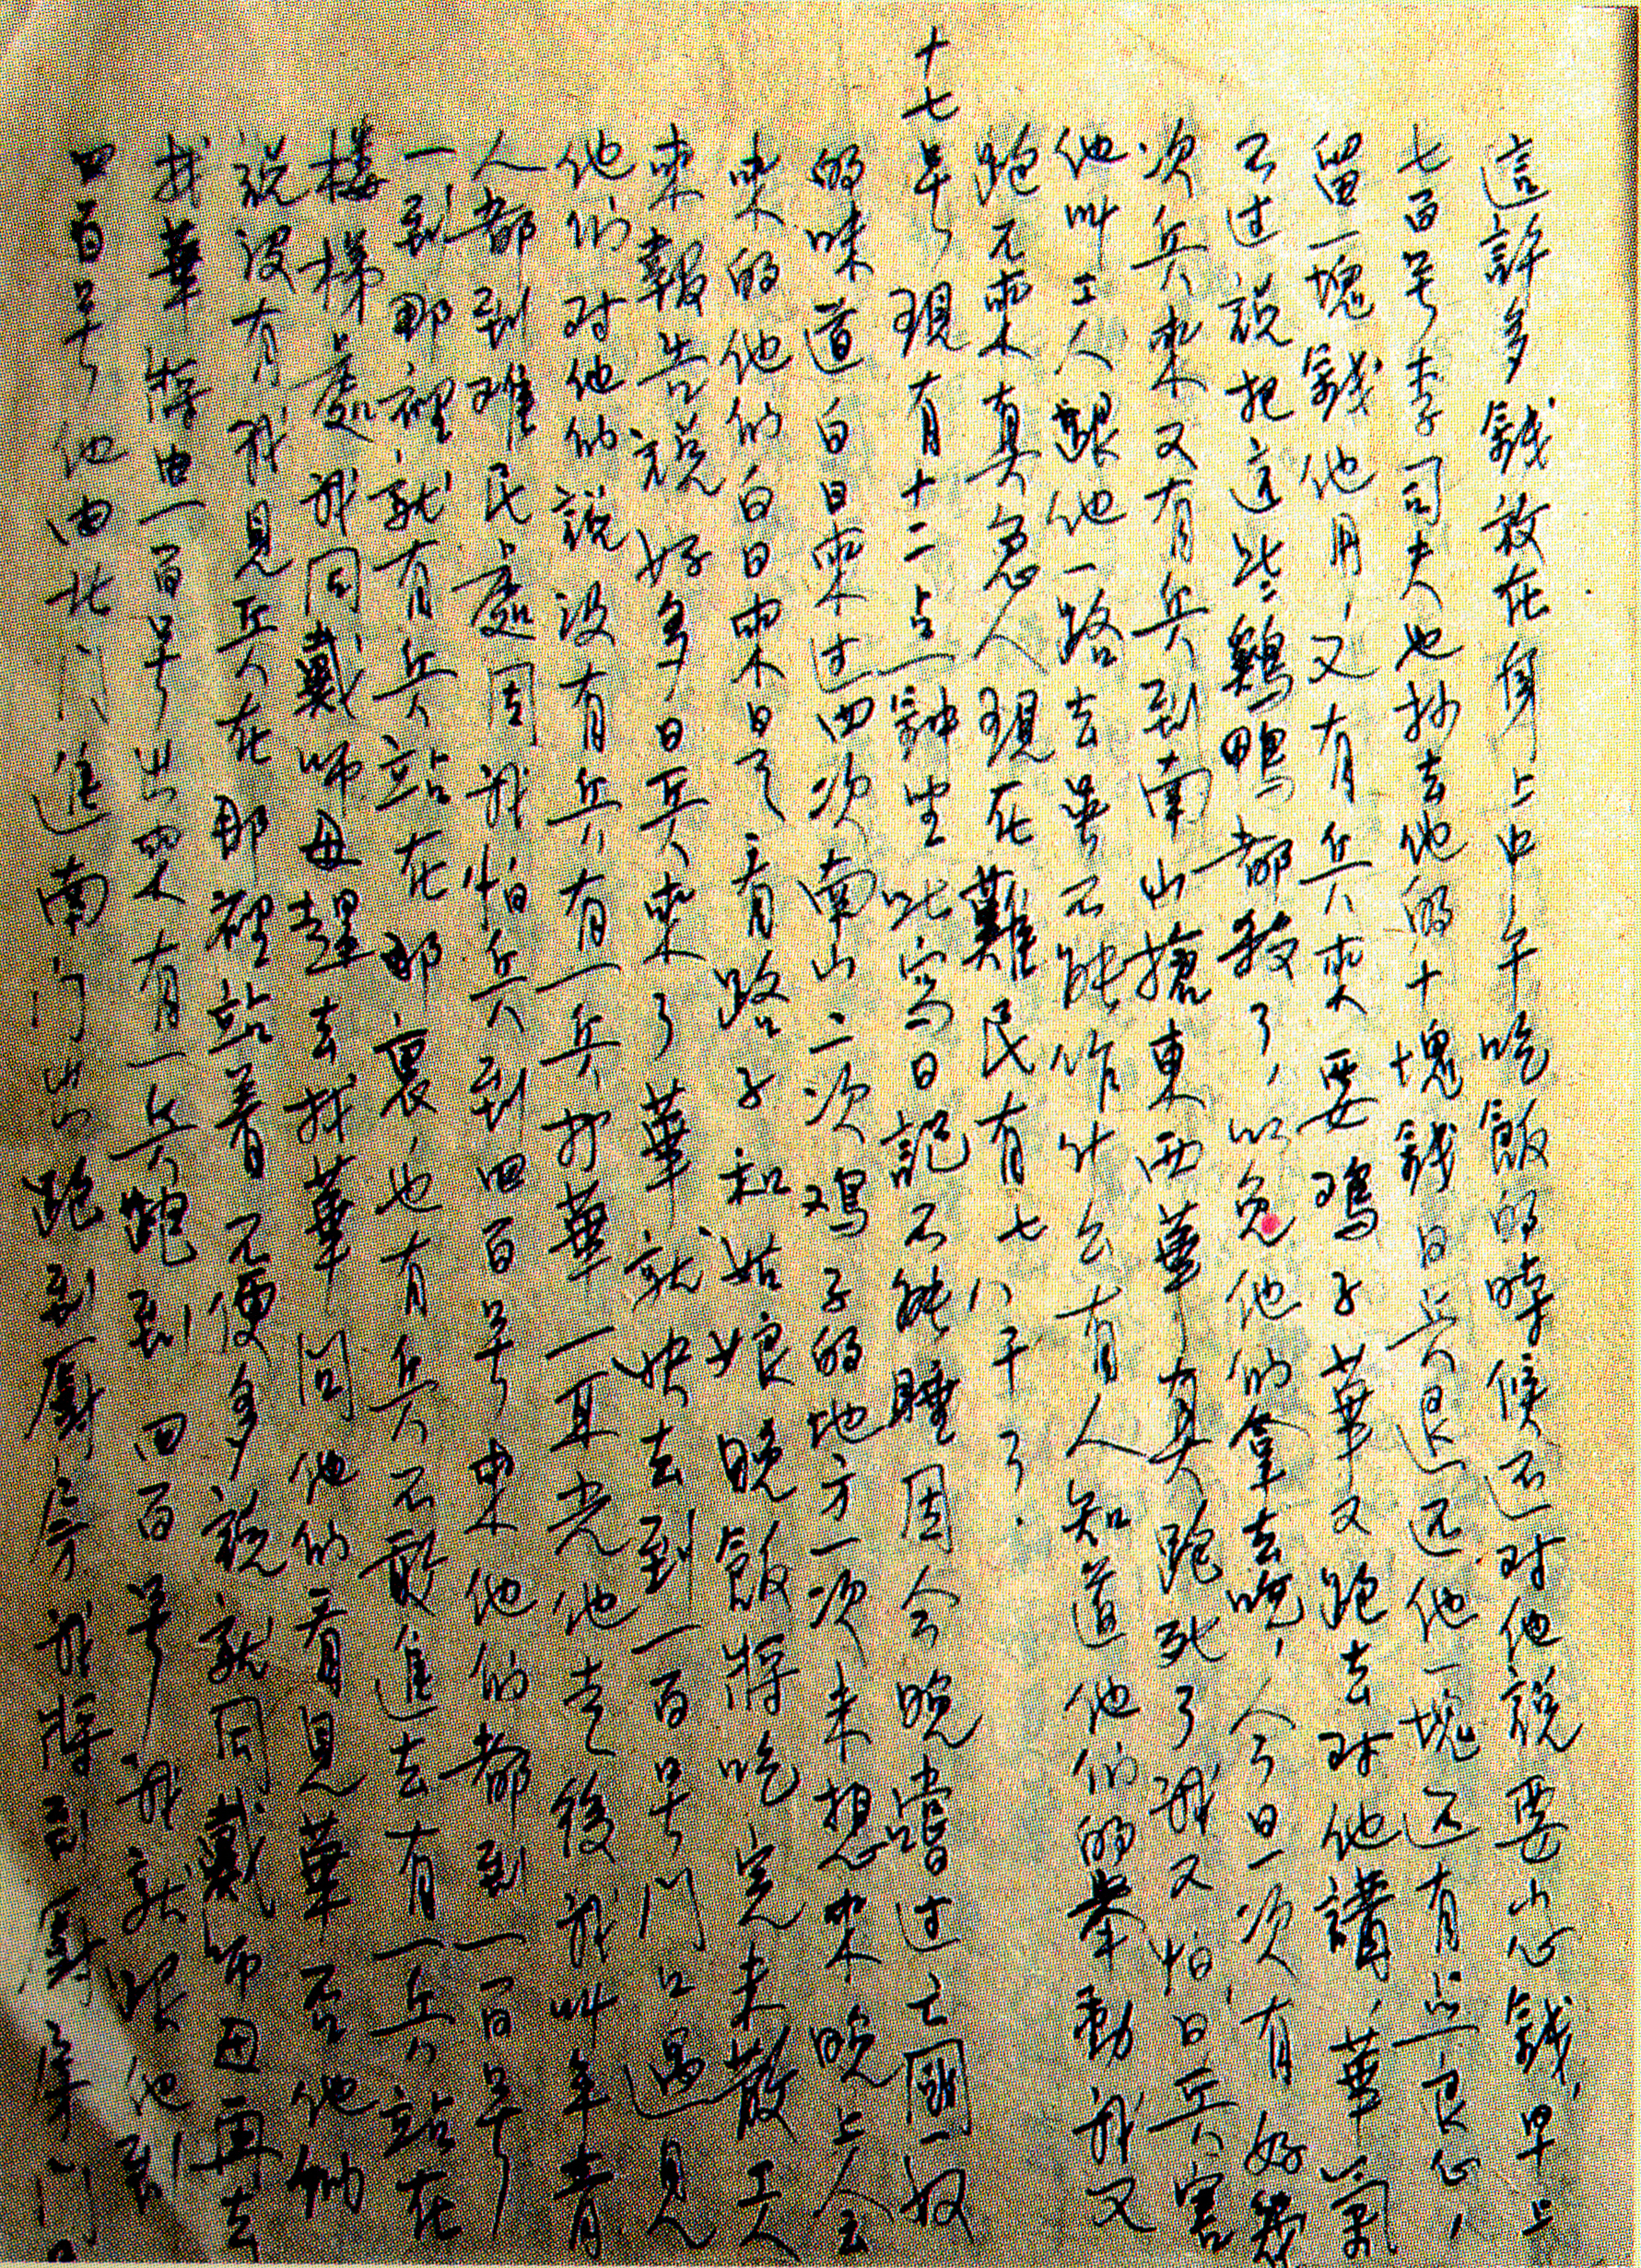 這許多錢放在身上中午吃飯的時候还对他說要小心錢，早上
七百号李司夫也抄去他的十塊錢日兵退还他一塊还有点良心，
留一塊錢他用，又有兵來要鸡子華又跑去对他講，華氣
不过說把这些鷄鴨都殺了，以免他们拿去吃，今日一次有好幾
次兵來又有兵到南山搶東西華真跑死了我又怕日兵害
他叫工人跟他一路去是不能作什么有人知道他们的举動我又
跑不來真急人現在難民有七八千了．
十七号 現有十二点鐘坐此寫日記不能睡因今晚嘗过亡國奴
的味道白日來过四次南山二次鸡子的地方一次未想來晚上会
來的他们白日來是看路子和姑娘晚飯將吃完未散工人
來報告説好多日兵來了華就快去到一百号门口遇見
他们对他们說沒有兵有一兵打華一耳光他走後我叫年青
人都到难民處因我怕兵到四百号來他们都到一百号
一到那裡就有兵站在那裏也有兵不敢進去有一兵站在
樓梯處我同戴师母趕去找華问他们看見華否他们
說沒有我見兵在那裡站着不便多說就同戴师母再去
找華將由一百号出來有一兵跑到四百号我就跟他到
四百号他由北门進南门出跑到廚房我將到廚房门